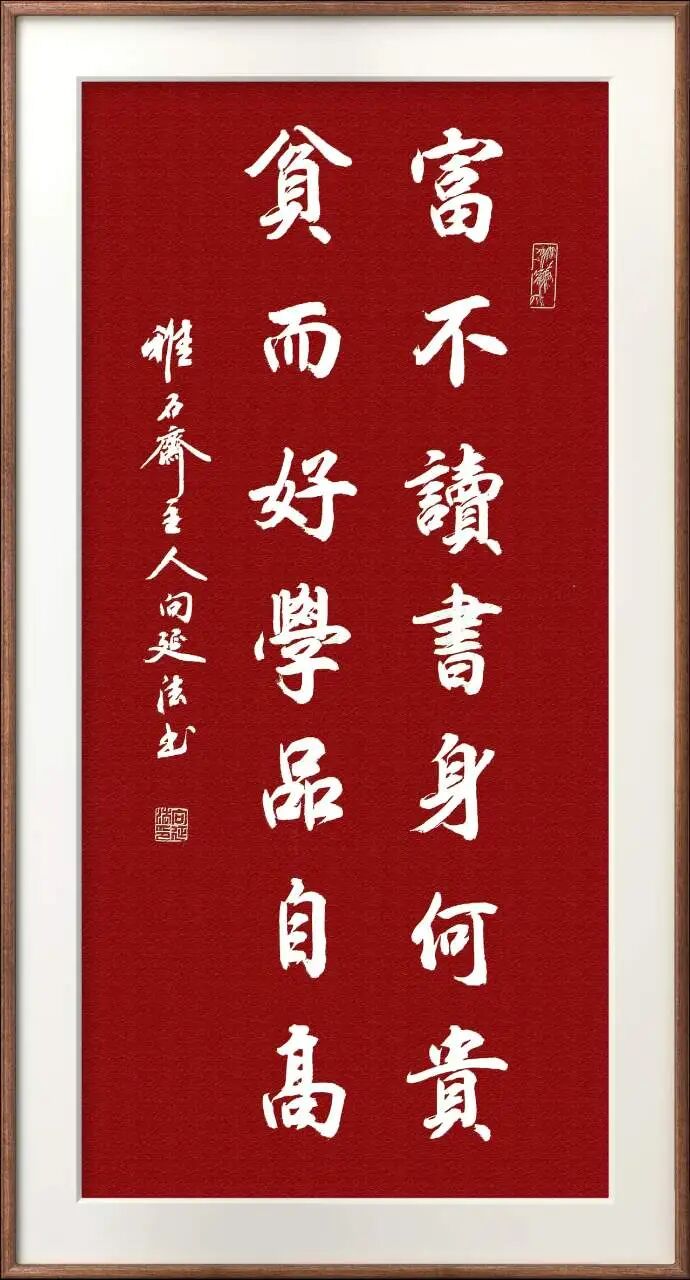 富不讀書身何貴
貧而好學品自高
雅石齋主人向延法书